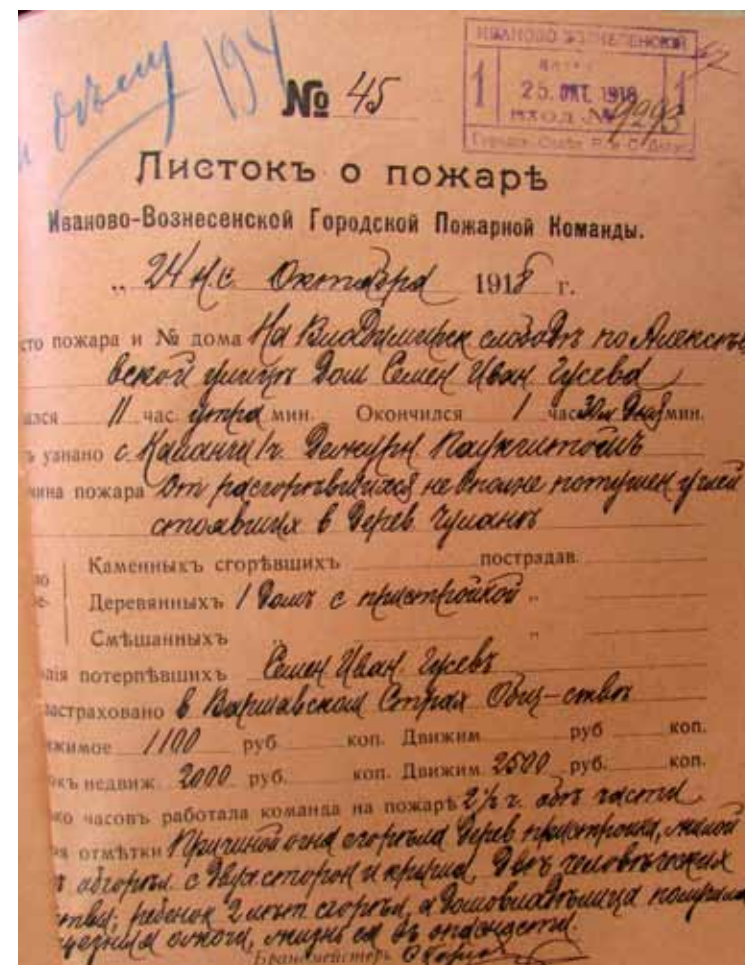 194
№ 45
ИВАНОВО-ВОЗНЕСЕНСКОЙ
1 25. ОКТ. 1918 1
ВХОД. № 9293
Листокъ о пожарѣ
Иваново-Вознесенской Городской Пожарной Команды.
„ 24 н.с. Октября 1918 г.
сто пожара и № дома На Владимирск слободѣ по Алексѣ
вской улицѣ Дом Семен Иван. Гусева
ался 11 час. утра мин. Окончился 1 час 30 м дня мин.
ь узнано с Каланчи 1 ч.
чина пожара От разгорѣвшихся не вполне потушен углей
стоявших в дерев чуланѣ
но Каменныхъ сгорѣвшихъ пострадав.
ре- Деревянныхъ 1 домъ с пристройкой „
Смѣшанныхъ „ „
лія потерпѣвшихъ Семен Иван Гусевъ
застраховано в Варшавском Страх Общ-ствѣ
вижимое 1100 руб. коп. Движим руб коп.
окъ недвиж. 2000 руб. коп. Движим. 2500 руб. коп.
ко часовъ работала команда на пожарѣ 2½ ч. обѣ части
ыя отмѣтки Причиной огня сгорѣла дерев пристройка, жилой
обгорѣл с двух сторон и крыша, Двѣ человѣческих
ребенок 2 лѣт сгорѣл, а домовладѣлица получила
ожоги, жизнь ея въ опасности.
Брандмейстеръ